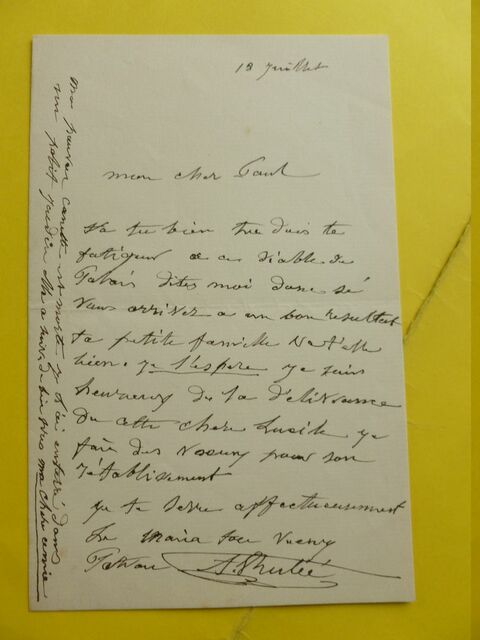 18 juillet
mon cher Paul
Va tu bien tu dois te
fatiguer a ce diable de
Palais dites moi donc sé
vous arrivez a un bon resultat
ta petite famille va t'elle
bien. je l'espere je suis
heureux de la délivrance
de cette chere Lucile je
fais des voeux pour son
rétablissement
je te serre affectueusement
la main ton vieux
Patron
ma pauvre est morte je l'ai enterré dans
un petit jardin elle a suivi de bien près ma chere amie